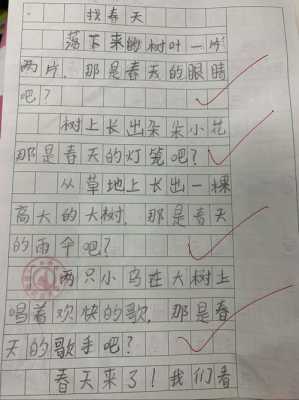 找春天
落下来的树叶一片
两片，那是春天的眼睛
吧？
树上长出朵朵小花
那是春天的灯笼吧？
从草地上长出一棵
高大的大树，那是春天
的雨伞吧？
两只小鸟在大树上
唱着欢快的歌，那是春
天的歌手吧？
春天来了！我们看